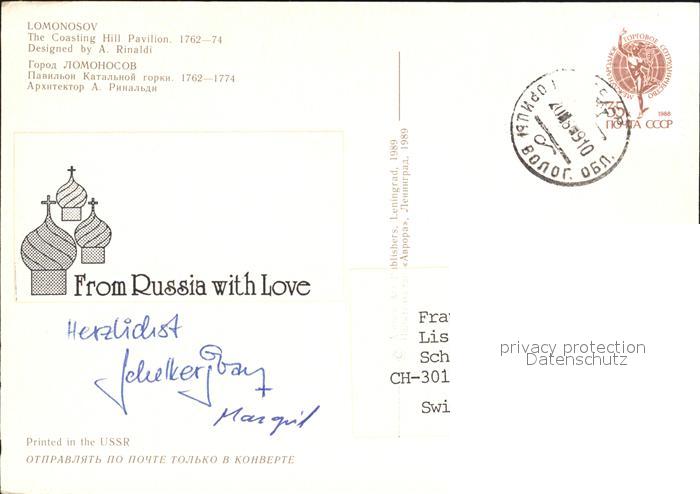 LOMONOSOV
The Coasting Hill Pavilion. 1762—74
Designed by A. Rinaldi
Город ЛОМОНОСОВ
Павильон Катальной горки. 1762—1774
Архитектор А. Ринальди
МЕЖДУНАРОДНОЕ ТОРГОВОЕ СОТРУДНИЧЕСТВО
35
1988
ПОЧТА СССР
ГОРИЦЫ ВОЛОГ. ОБЛ.
Publishers, Leningrad, 1989
«Аврора», Ленинград, 1989
From Russia with Love
Herzlichst
Margrit
Frau
Lis
Sch
CH-301
Swi
privacy protection
Datenschutz
Printed in the USSR
ОТПРАВЛЯТЬ ПО ПОЧТЕ ТОЛЬКО В КОНВЕРТЕ